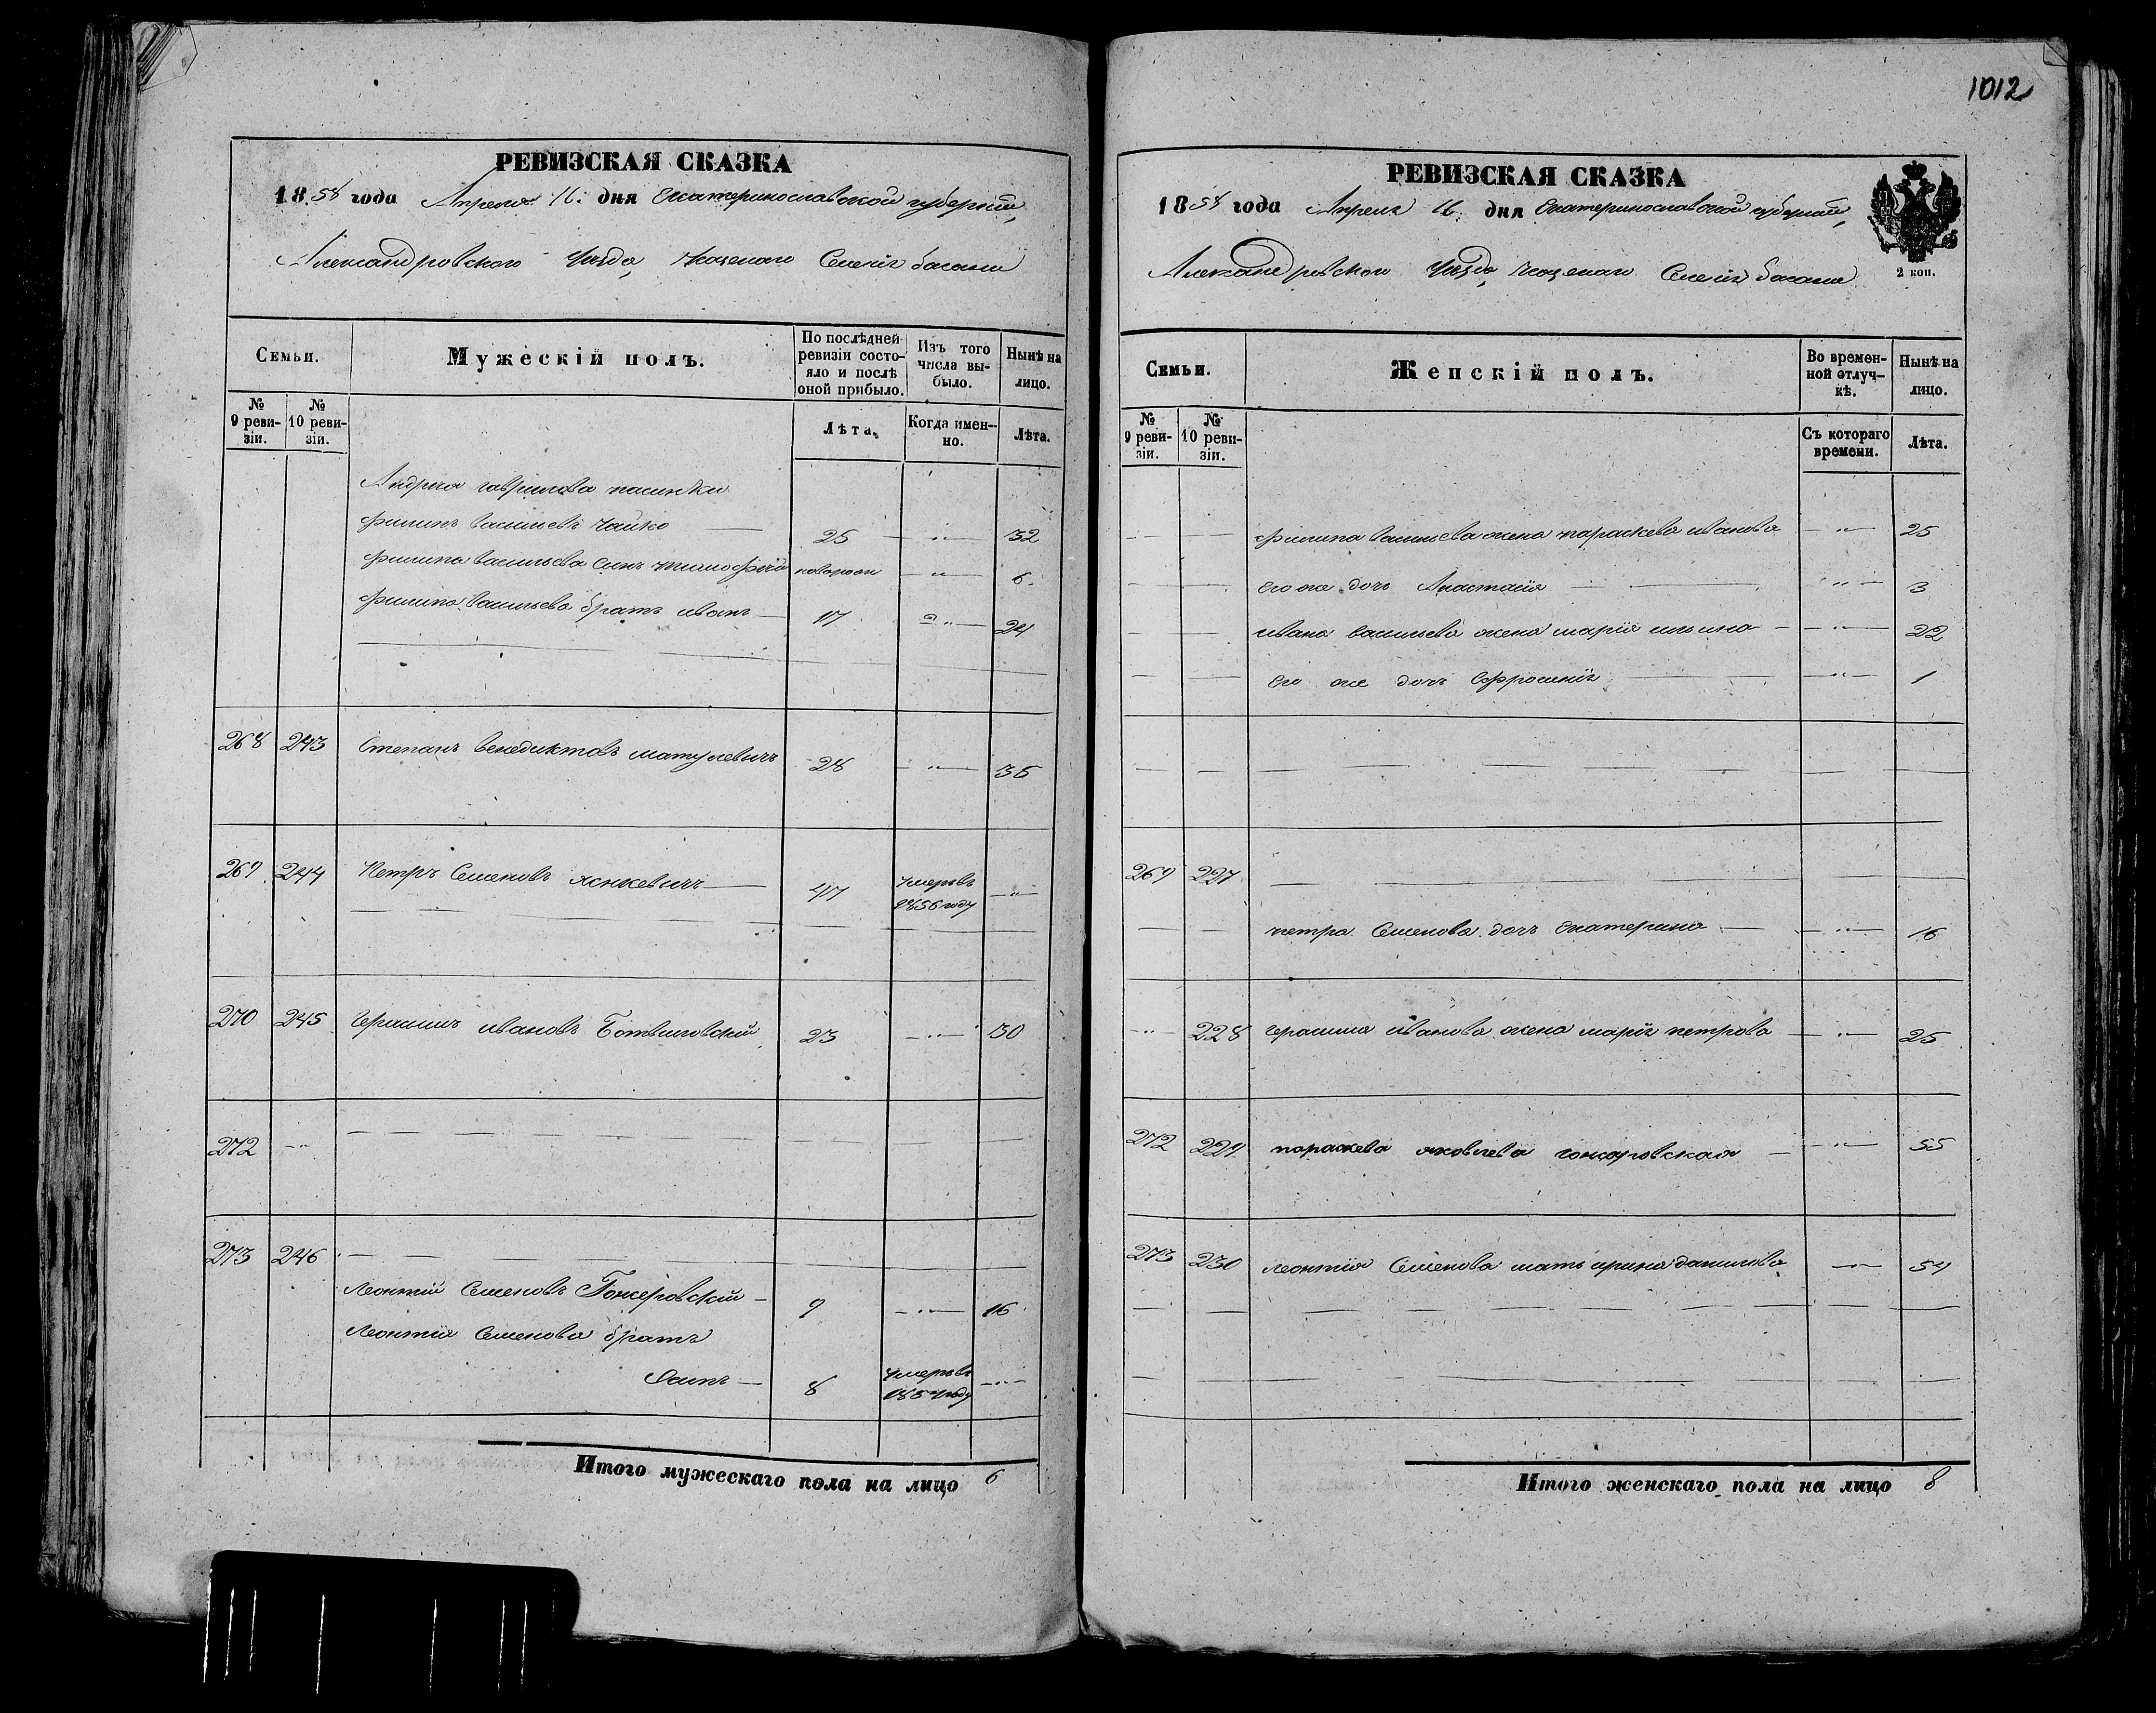 1012
РЕВИЗСКАЯ СКАЗКА
1858 года Апреля 16. дня Екатеринославской губернiи,
Александровского Уѣзда, Казенаго Селенiя басани
Семьи.
Мужескiй полъ.
По послѣдней ревизiи состояло и послѣ оной прибыло.
Изъ того числа выбыло.
Нынѣ на лицо.
№ 9 ревизiи.
№ 10 ревизiи.
Лѣта.
Когда именно.
Лѣта.
Андрея гаврилова пасинки
Филипъ васильевъ Чайко 25 32
Филипа васильева сынъ тимофѣй 6.
Филипа васильева братъ иванъ 17 24
268 243 Степанъ венедиктовъ матулевичъ 28 35
269 244 Петръ Семеновъ яснкевичъ 47 умеръ въ 1856 году
270 245 Герасимъ ивановъ 23 30
272
273 246
Леонтiй Семеновъ 9 16
Леонтiя Семенова братъ
Осипъ 8 умеръ въ
Итого мужескаго пола на лицо 6
РЕВИЗСКАЯ СКАЗКА
1858 года Апреля 16. дня Екатеринославской губернiи,
Александровского Уѣзда, Казенаго Селенiя басани
2 коп.
Семьи.
Женскiй полъ.
Во временной отлучкѣ.
Нынѣ на лицо.
№ 9 ревизiи.
№ 10 ревизiи.
Съ котораго времени.
Лѣта.
Филипа васильева жена параскева иванова 25
Его же дочь Анастасiя 3
ивана васильева жена марiя ильина 22
Его же дочь Ефросинiя 1
269 227
петра Семенова дочь Екатерина 16
228 герасима иванова жена марiя петрова 25
272 229 параскева яковлева гонсаровская 55
273 230 леонтiя Семенова мать ирина данилова 54
Итого женскаго пола на лицо 8